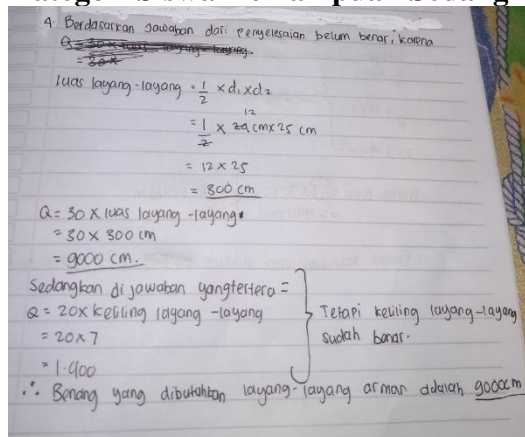 4. Berdasarkan jawaban dari penyelesaian belum benar, karena
Q = 30 x luas layang-layang
= 30 x
luas layang-layang = 1/2 x d1 x d2
12
= 1/2 x 24 cm x 25 cm
= 12 x 25
= 300 cm
Q = 30 x luas layang-layang
= 30 x 300 cm
= 9000 cm.
Sedangkan di jawaban yang tertera =
Q = 20 x keliling layang-layang
= 20 x 7
= 1.400
Tetapi keliling layang-layang
sudah benar.
∴ Benang yang dibutuhkan layang-layang arman adalah 9000 cm